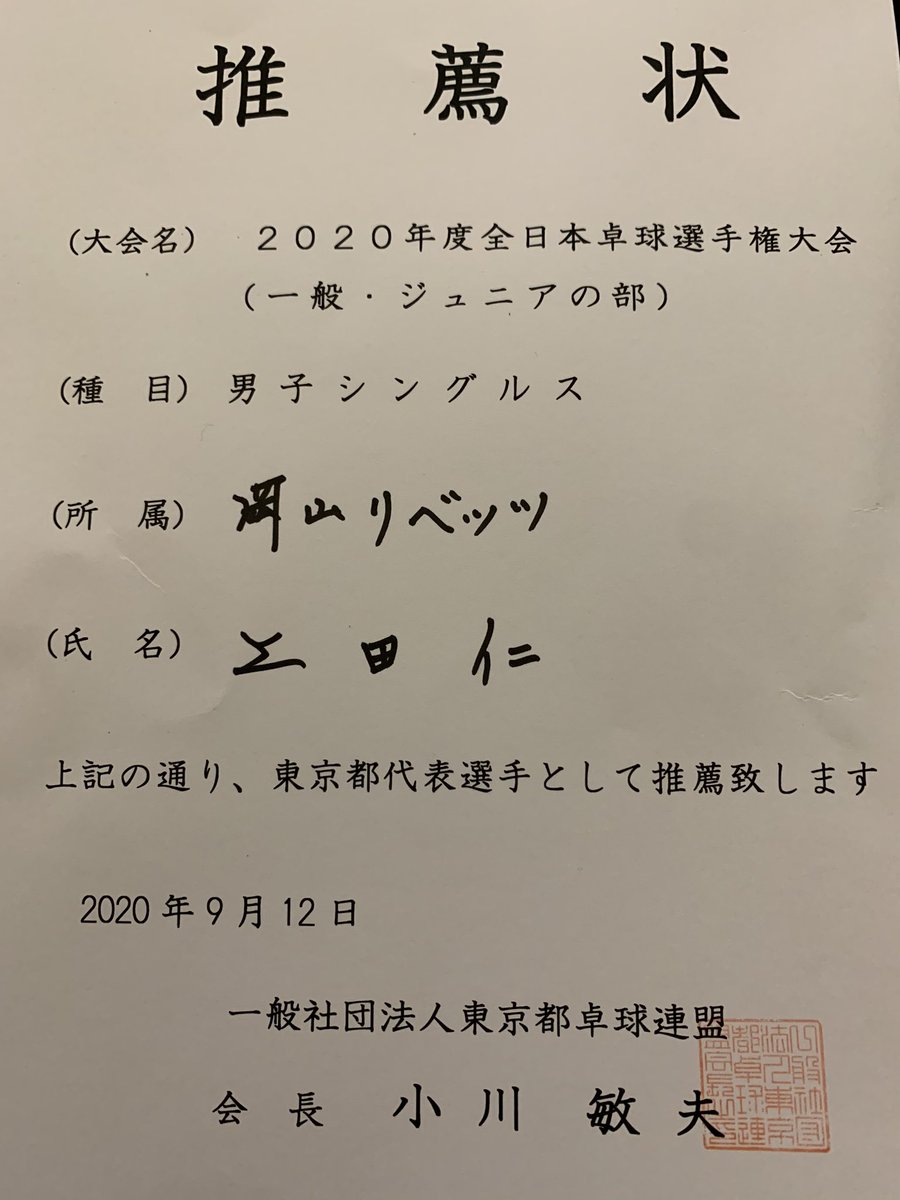 推薦状
(大会名) 2020年度全日本卓球選手権大会
(一般・ジュニアの部)
(種 目) 男子シングルス
(所 属) 岡山リベッツ
(氏 名) 上田 仁
上記の通り、東京都代表選手として推薦致します
2020年9月12日
一般社団法人東京都卓球連盟
会長 小川 敏夫